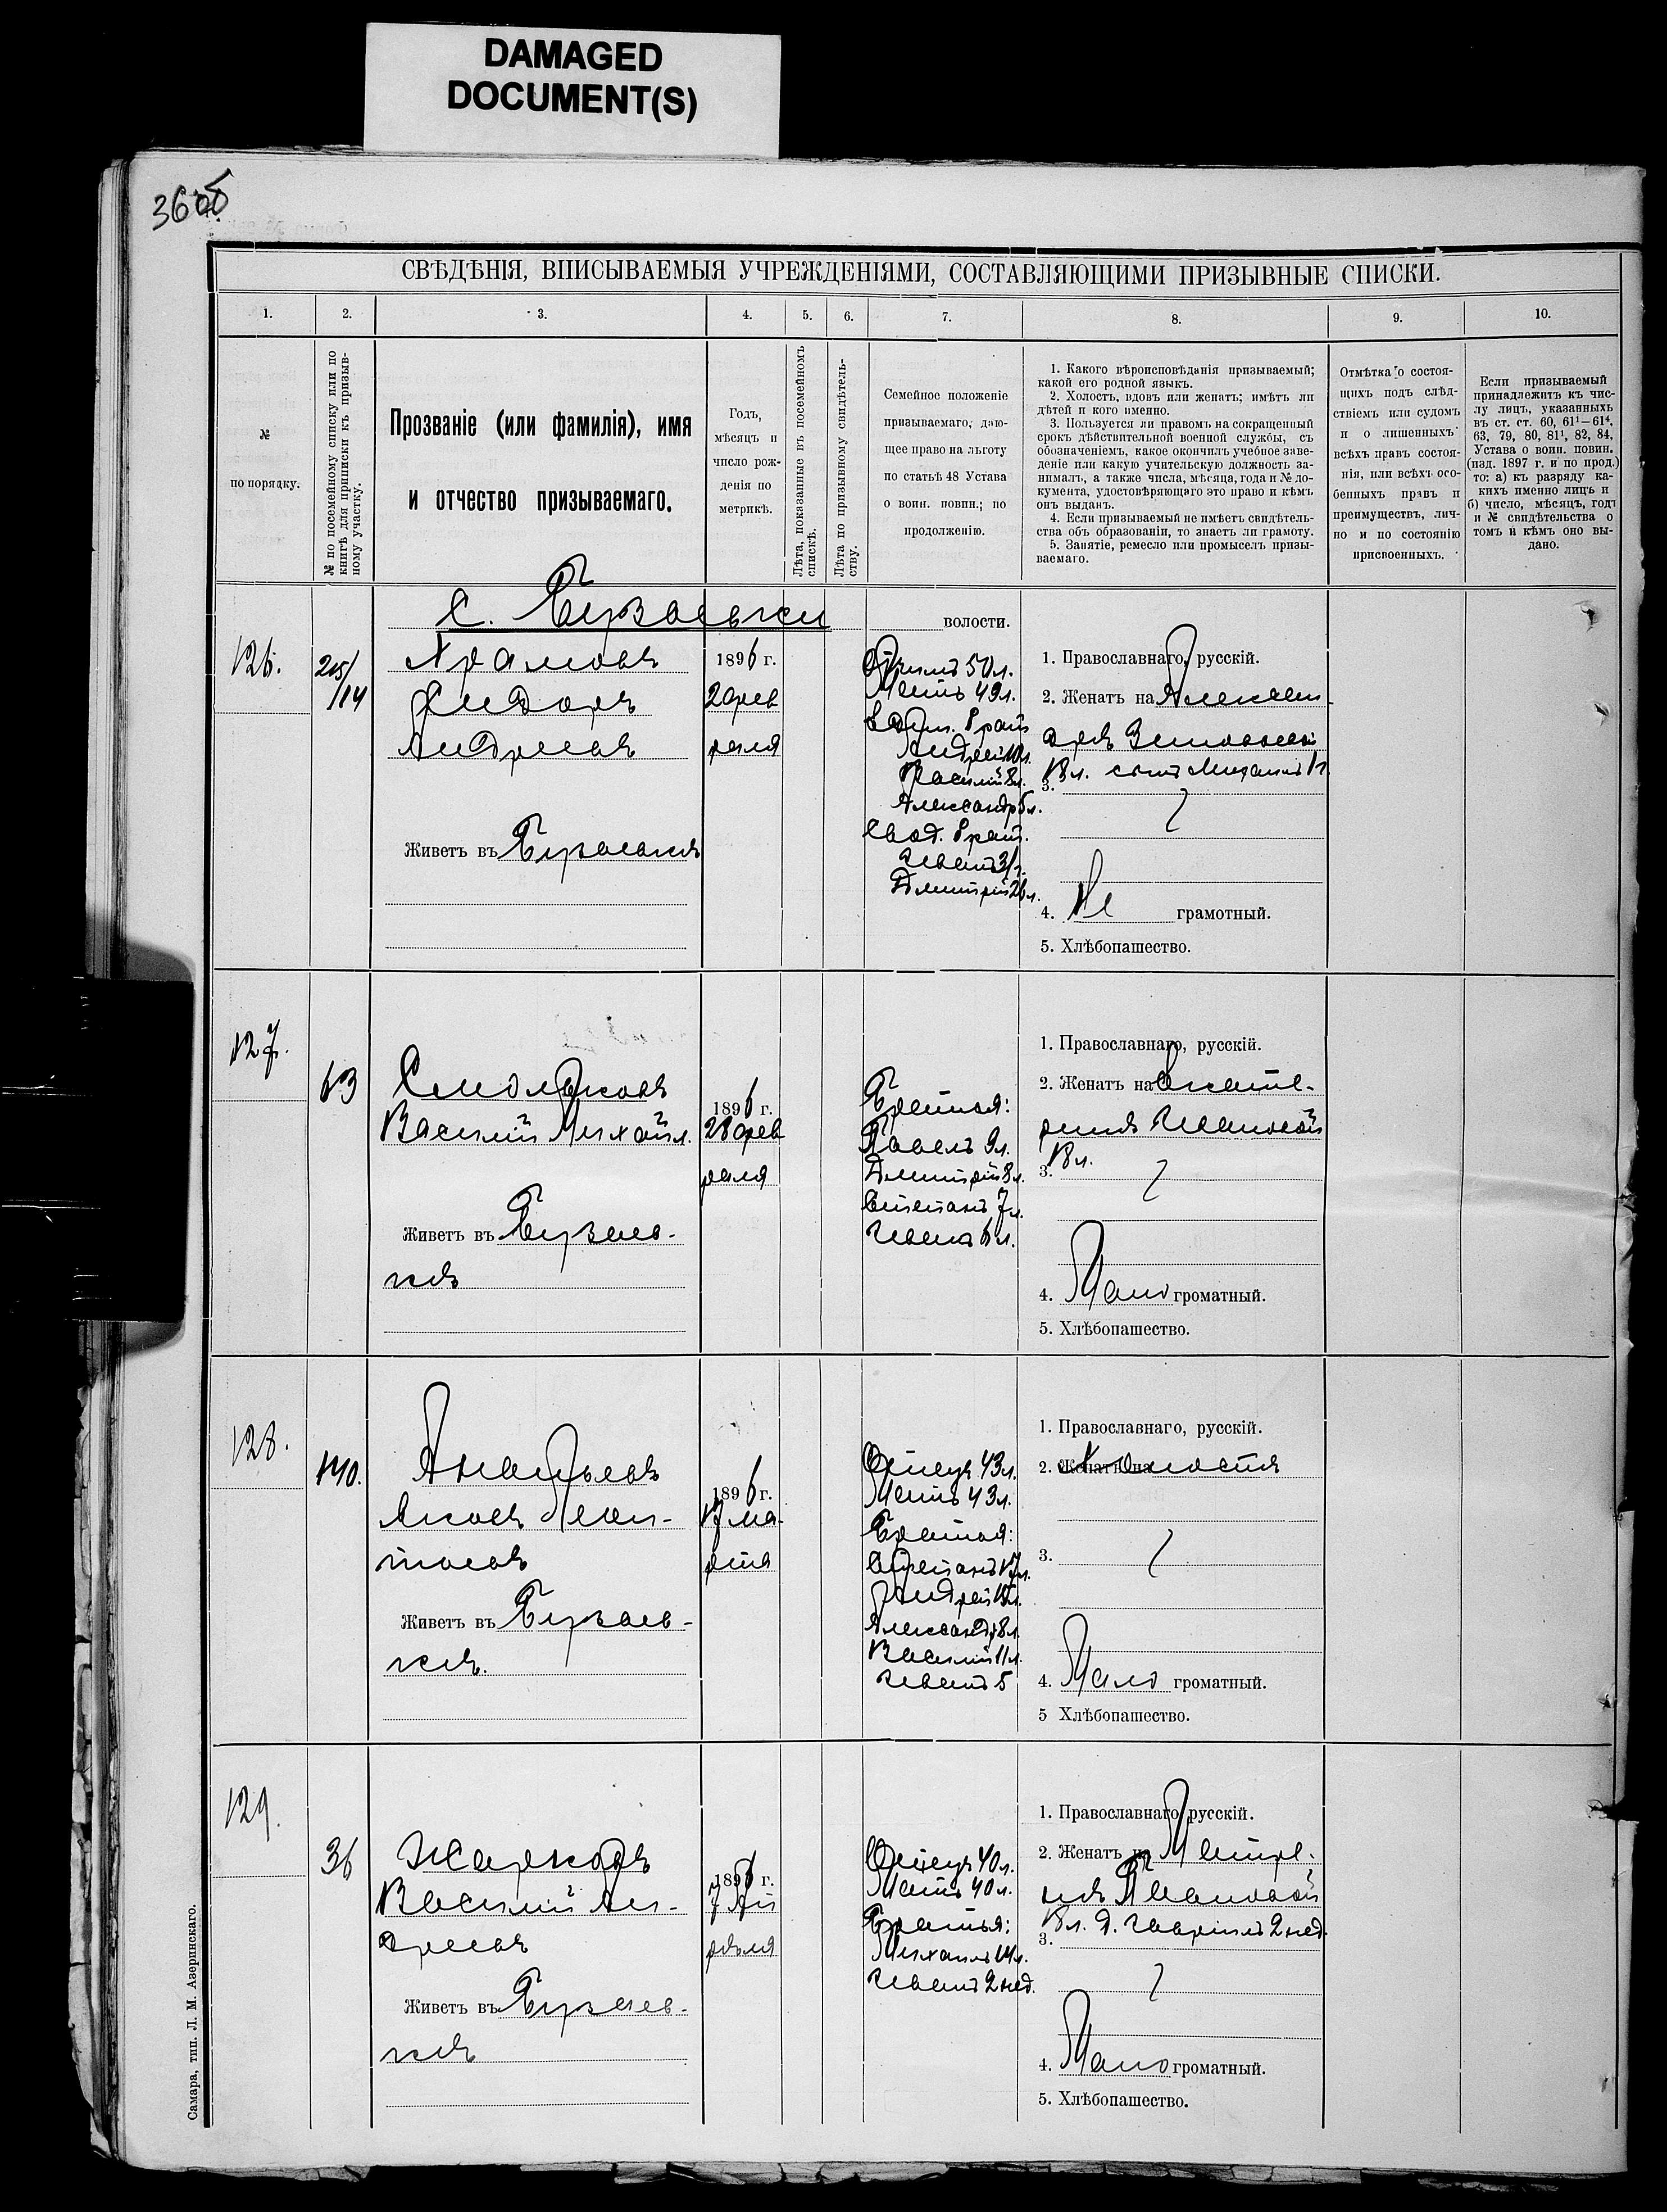 DAMAGED
DOCUMENT(S)
36об
СВѢДѢНІЯ, ВПИСЫВАЕМЫЯ УЧРЕЖДЕНІЯМИ, СОСТАВЛЯЮЩИМИ ПРИЗЫВНЫЕ СПИСКИ.
1.
2.
3.
4.
5.
6.
7.
8.
9.
10.
№
по порядку.
№ по посемейному списку или по
книгѣ для приписки къ призыв-
ному участку.
Прозваніе (или фамилія), имя
и отчество призываемаго.
Годъ,
мѣсяцъ и
число рож-
денія по
метрикѣ.
Лѣта, показанныя въ посемейномъ
спискѣ.
Лѣта по призывному свидѣтель-
ству.
Семейное положеніе
призываемаго, даю-
щее право на льготу
по статьѣ 48 Устава
о воин. повин.; по
продолженію.
1. Какого вѣроисповѣданія призываемый;
какой его родной языкъ.
2. Холостъ, вдовъ или женатъ; имѣтъ ли
дѣтей и кого именно.
3. Пользуется ли правомъ на сокращенный
срокъ дѣйствительной военной службы, съ
обозначеніемъ, какое окончилъ учебное заве-
деніе или какую учительскую должность за-
нималъ, а также числа, мѣсяца, года и № до-
кумента, удостовѣряющаго это право и кѣмъ
онъ выданъ.
4. Если призываемый не имѣетъ свидѣтель-
ства объ образованіи, то знаетъ ли грамоту.
5. Занятіе, ремесло или промыселъ призы-
ваемаго.
Отмѣтка о состоя-
щихъ подъ слѣд-
ствіемъ или судомъ
и о лишенныхъ
всѣхъ правъ состоя-
нія, или всѣхъ осо-
бенныхъ правъ и
преимуществъ, лич-
но и по состоянію
присвоенныхъ.
Если призываемый
принадлежитъ къ чис-
лу лицъ, указанныхъ
въ ст. ст. 60, 61¹—61⁴,
63, 79, 80, 81¹, 82, 84,
Устава о воин. повин.
(изд. 1897 г. и по прод.)
то: а) къ разряду ка-
кихъ именно лицъ и
б) число, мѣсяцъ, годъ
и № свидѣтельства о
томъ и кѣмъ оно вы-
дано.
С. Бузаевки
волости.
126.
215/
114
Храмовъ
Сидоръ
Андреевъ
Живетъ въ Бузаевкѣ
1896 г.
2 фев
раля
Отчимъ 50 л.
Мать 49 л.
Андрей 10 л.
Василій 8 л.
Александр 5 л.
Свод. брат.
Иванъ 31 г.
Дмитрій 26 л.
1. Православнаго, русскій.
2. Женатъ на Алексан
дрѣ Зиновьевой
18 л. сынъ Михаилъ 1 г.
3.
4. Не грамотный.
5. Хлѣбопашество.
127.
63
Смоляковъ
Василій Михайл.
Живетъ въ Бузаев-
кѣ
1896 г.
28 фев
раля
Братья:
Павелъ 9 л.
Дмитрій 8 л.
Степанъ 7 л.
Ивана 6 л.
1. Православнаго, русскій.
2. Женатъ на Екате-
ринѣ Ивановой
18 л.
3.
4. Мало громатный.
5. Хлѣбопашество.
128.
140.
Ананьевъ
Яковъ Леон-
тьевъ
Живетъ въ Бузаев-
кѣ.
1896 г.
17 ма-
рта
Отецъ 43 л.
Мать 43 л.
Братья:
Степанъ 17 л.
Андрей 15 л.
Александр 8 л.
Василій 11 л.
Иванъ 5
1. Православнаго, русскій.
2. Женатъ на Холостъ
3.
4. Мало громатный.
5 Хлѣбопашество.
129.
36
Жарковъ
Василій Ан-
дреевъ
Живетъ въ Бузаев-
кѣ
1896 г.
7 Ап
рѣля
Отецъ 40 л.
Мать 40 л.
Братья:
Михаилъ 14 л.
Иванъ 2 нед.
1. Православнаго русскій.
2. Женатъ на Матре-
нѣ Ивановой
18 л. д. Гаврiилъ 2 нед.
3.
4. Мало громатный.
5. Хлѣбопашество.
Самара, тип. Л. М. Азеринскаго.